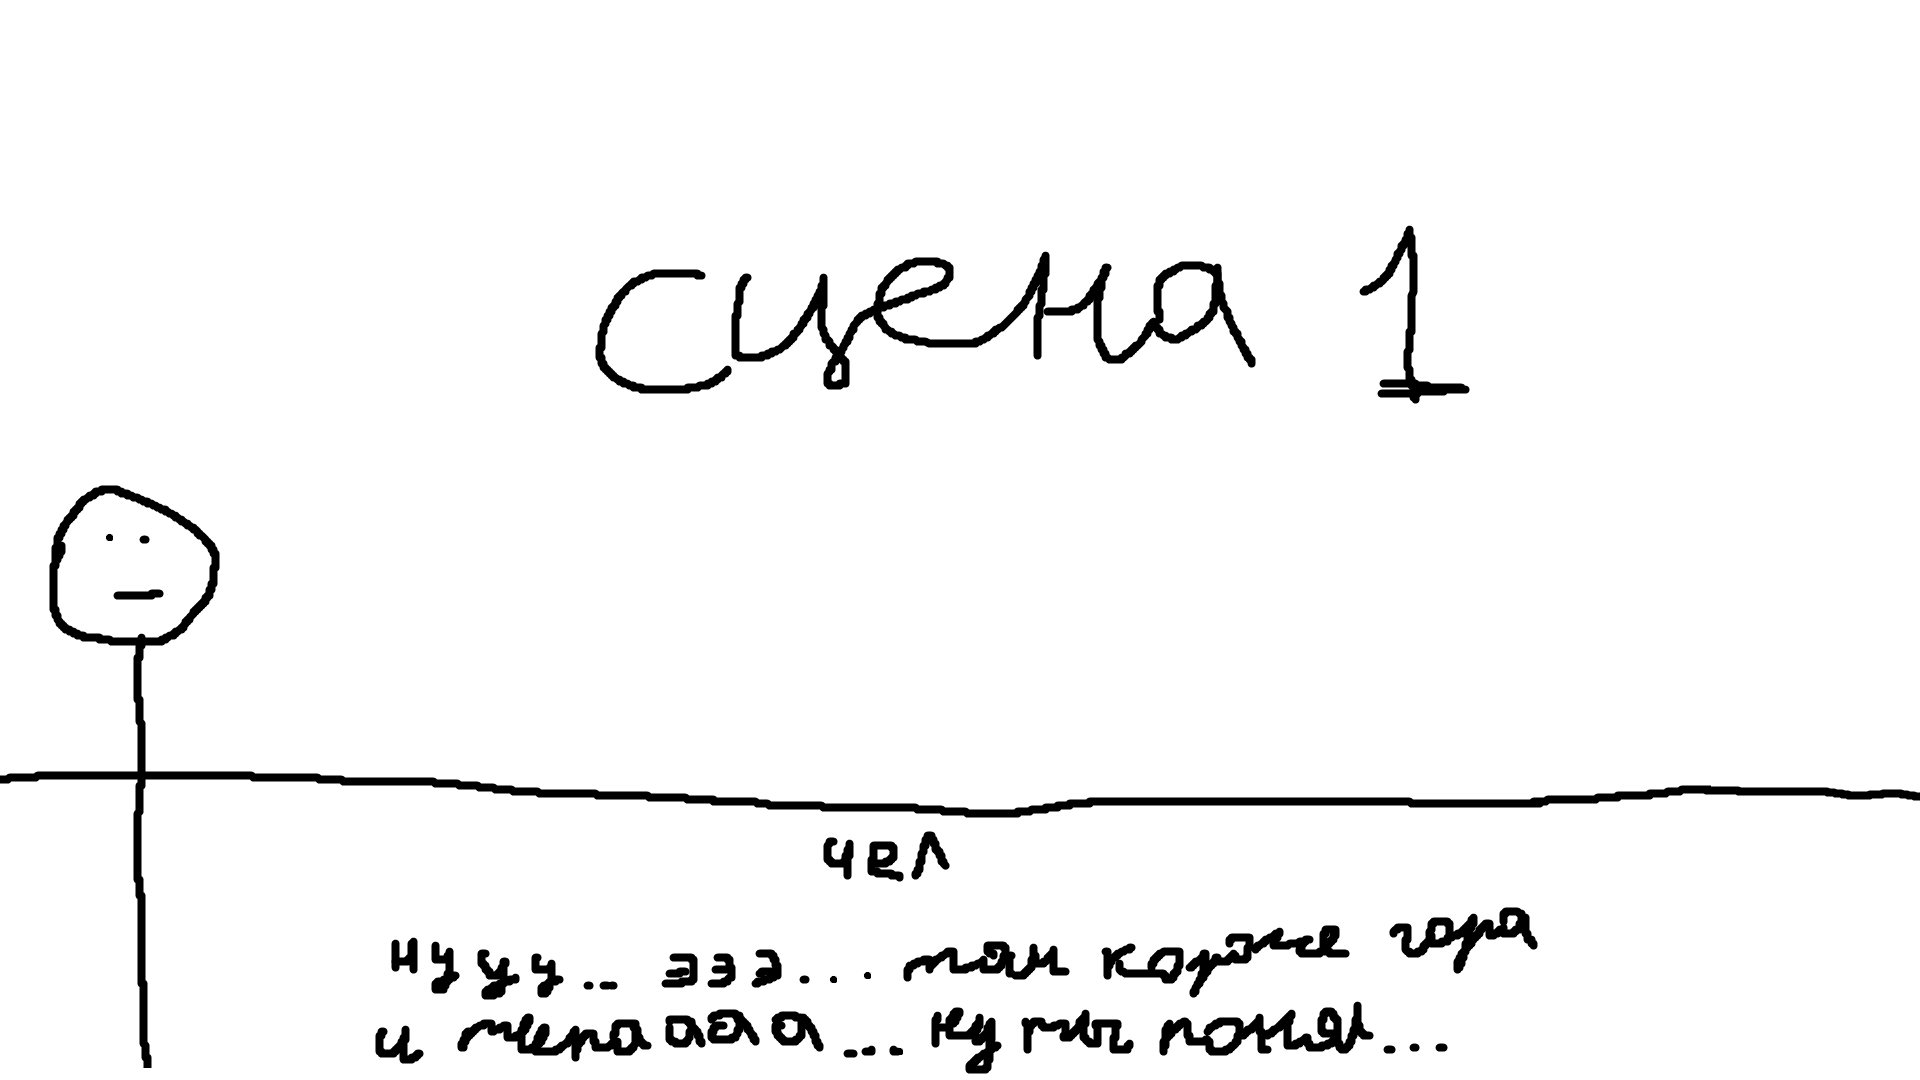 сцена 1
чел
нуууу... эээ... там короче гора
и тераааа... ну ты понел...